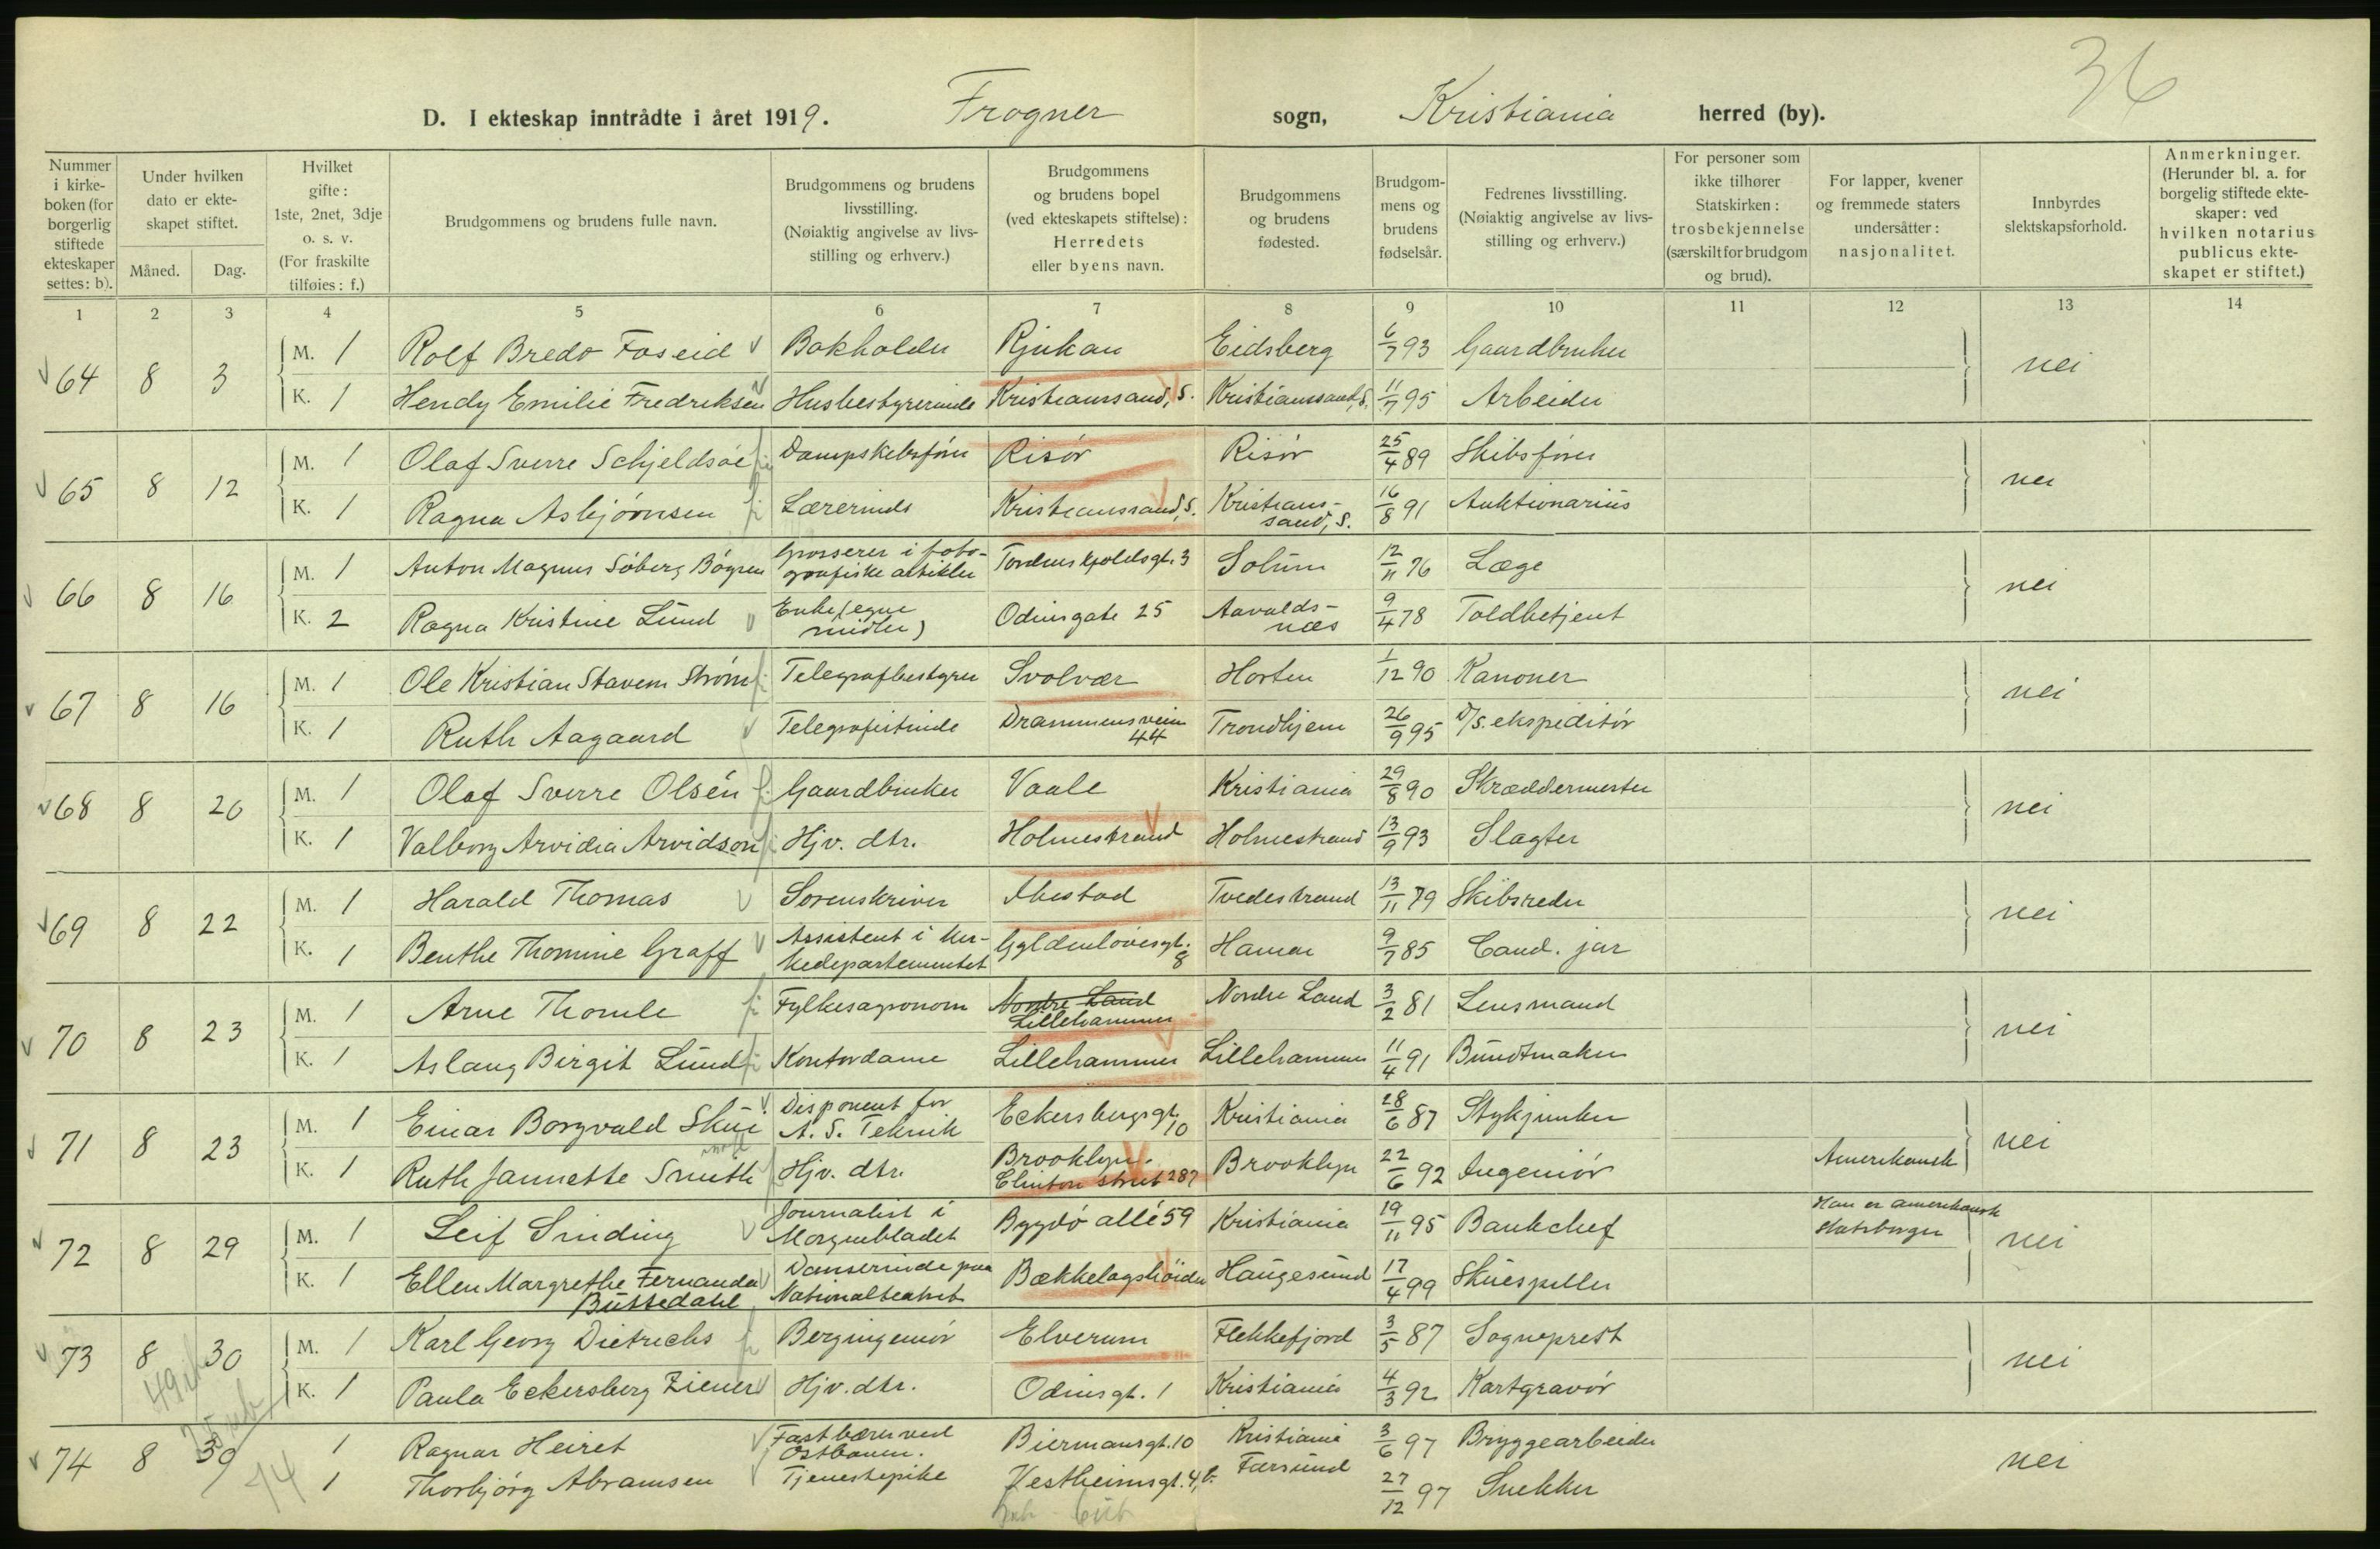 36
D. I ekteskap inntrådte i året 1919. Frogner sogn, Kristiania herred (by).
Nummer i kirke-boken (for borgerlig stiftede ekteskaper settes: b).
Under hvilken dato er ekte-skapet stiftet.
Måned. Dag.
Hvilket gifte: 1ste, 2net, 3dje o. s. v. (For fraskilte tilføies: f.)
Brudgommens og brudens fulle navn.
Brudgommens og brudens livsstilling. (Nøiaktig angivelse av livs-stilling og erhverv.)
Brudgommens og brudens bopel (ved ekteskapets stiftelse): Herredets eller byens navn.
Brudgommens og brudens fødested.
Brudgom-mens og brudens fødselsår.
Fedrenes livsstilling. (Nøiaktig angivelse av livs-stilling og erhverv.)
For personer som ikke tilhører Statskirken: trosbekjennelse (særskilt for brudgom og brud).
For lapper, kvener og fremmede staters undersåtter: nasjonalitet.
Innbyrdes slektskapsforhold.
Anmerkninger. (Herunder bl. a. for borgelig stiftede ekte-skaper: ved hvilken notarius publicus ekte-skapet er stiftet.)
1 2 3 4 5 6 7 8 9 10 11 12 13 14
64 8 3 M. 1 Rolf Bredo Foseid Bokholder Rjukan Eidsberg 6/7 93 Gaardbruker nei
K. 1 Hendy Emilie Fredriksen Husbestyrerinde Kristianssand, S. Kristianssand, S. 11/7 95 Arbeider
65 8 12 M. 1 Olaf Sverre Schjeldsöe Dampskibsförer Risör Risör 25/4 89 Skibsförer nei
K. 1 Ragna Asbjörnsen Lærerinde Kristianssand, S. Kristians-sand, S. 16/8 91 Auktionarius
66 8 16 M. 1 Anton Magnus Söberg Bögren Grosserer i foto-grafiske artikler Tordenskjoldsgt. 3 Solum 12/11 76 Læge nei
K. 2 Ragna Kristine Lund Enke (egne midler) Odinsgate 25 Aavalds-næs 9/4 78 Toldbetjent
67 8 16 M. 1 Ole Kristian Stavem Ström Telegrafbestyrer Svolvær Horten 1/12 90 Kanoner nei
K. 1 Ruth Aagaard Telegrafistinde Drammensveien 44 Trondhjem 26/9 95 D/S. ekspeditör
68 8 20 M. 1 Olaf Sverre Olsén Gaardbruker Vaale Kristiania 29/8 90 Skræddermester nei
K. 1 Valborg Arvidia Arvidson Hjv. dtr. Holmestrand Holmestrand 13/9 93 Slagter
69 8 22 M. 1 Harald Thomas Sorenskriver Ibestad Tvedestrand 13/11 79 Skibsreder nei
K. 1 Benthe Thomine Graff Assistent i Kir-kedepartementet Gyldenlövesgt. 8 Hamar 9/7 85 Cand. jur
70 8 23 M. 1 Arne Thomle Fylkesagronom Nordre Land Lillehammer Nordre Land 3/2 81 Lensmand nei
K. 1 Aslaug Birgit Lund Kontordame Lillehammer Lillehammer 11/4 91 Bundtmaker
71 8 23 M. 1 Einar Borgvald Skui Disponent for A. S. Teknik Eckersbergsgt. 10 Kristiania 28/6 87 Stykjunker nei
K. 1 Ruth Jannette Smith Hjv. dtr. Brooklyn. Clinton street 287 Brooklyn 22/6 92 Ingeniör Amerikansk
72 8 29 M. 1 Leif Sinding Journalist i Morgenbladet Bygdö allé 59 Kristiania 19/11 95 Bankchef Han er amerikansk statsborger nei
K. 1 Ellen Margrethe Fernanda Buttedahl Danserinde paa Nationalteatret Bækkelagshöiden Haugesund 17/4 99 Skuespiller
73 8 30 M. 1 Karl Georg Dietrichs Bergingeniör Elverum Flekkefjord 3/5 87 Sogneprest nei
K. 1 Paula Eckersberg Ziener Hjv. dtr. Odinsgt. 1 Kristiania 4/3 92 Kartgravör
74 8 30 1 Ragnar Heiret Fastbærer ved Östbanen. Biermansgt. 10 Kristiania 3/6 97 Bryggearbeider nei
1 Thorbjörg Abramsen Tjenestepike Vestheimsgt. 4, b. Farsund 27/12 97 Snekker
74